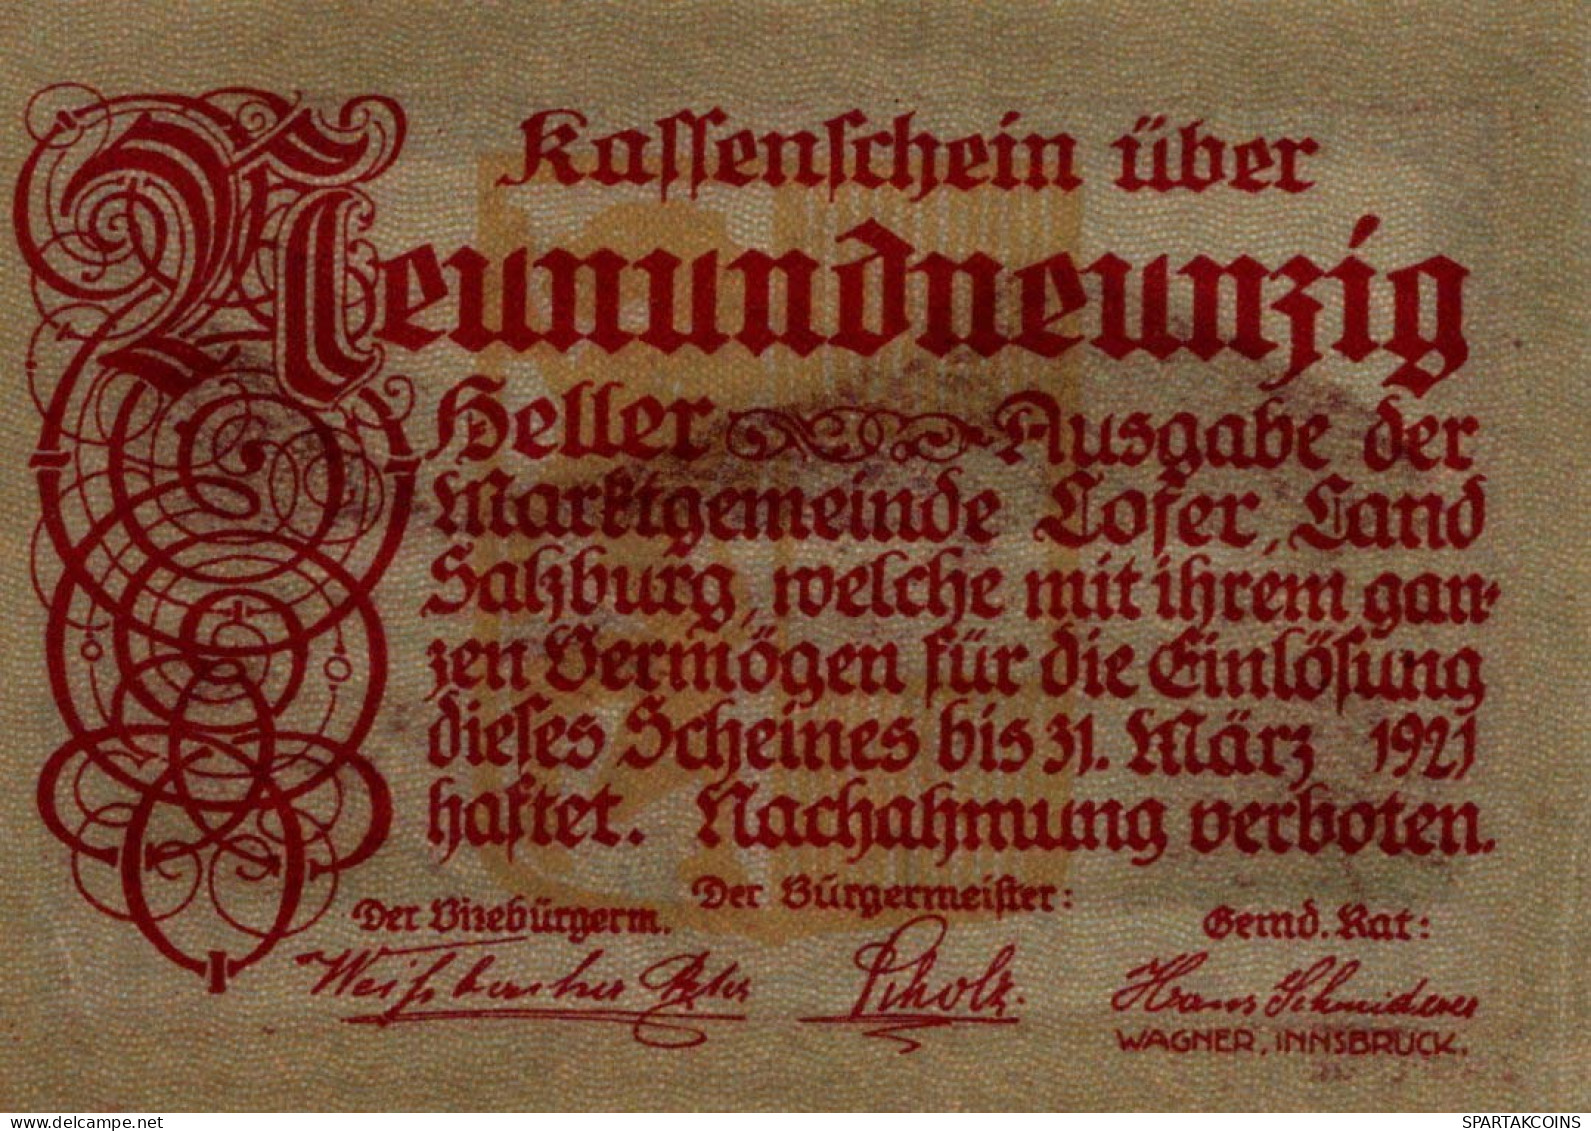 Kassenschein über
Neunundneunzig
Heller Ausgabe der
Marktgemeinde Lofer, Land
Salzburg, welche mit ihrem gan-
zen Vermögen für die Einlösung
dieses Scheines bis 31. März 1921
haftet. Nachahmung verboten.
Der Bürgermeister:
Der Vizebürgerm. Gemd. Rat:
Scholz. Hans Schmiderer
WAGNER, INNSBRUCK.
SPARTAKCOINS